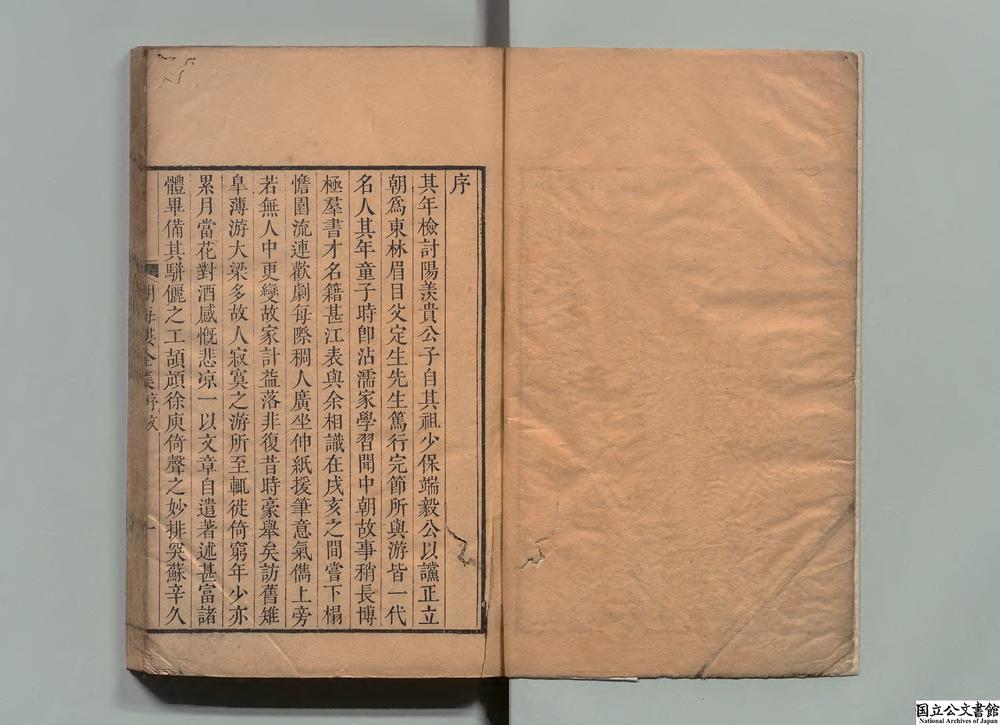 序
其年檢討陽羨貴公子自其祖少保端毅公以讜正立
朝爲東林眉目父定生先生篤行完節所與游皆一代
名人其年童子時卽沾濡家學習聞中朝故事稍長博
極羣書才名籍甚江表與余相識在戌亥之間嘗下榻
憺園流連歡劇每際稠人廣坐伸紙援筆意氣儁上旁
若無人中更變故家計益落非復昔時豪舉矣訪舊雉
臯薄游大梁多故人寂寞之游所至輒徙倚窮年少亦
累月當花對酒感慨悲凉一以文章自遣著述甚富諸
體畢備其駢儷之工頡頏徐庾倚聲之妙排奡蘇辛久
湖海樓全集序
一
国立公文書館
National Archives of Japan